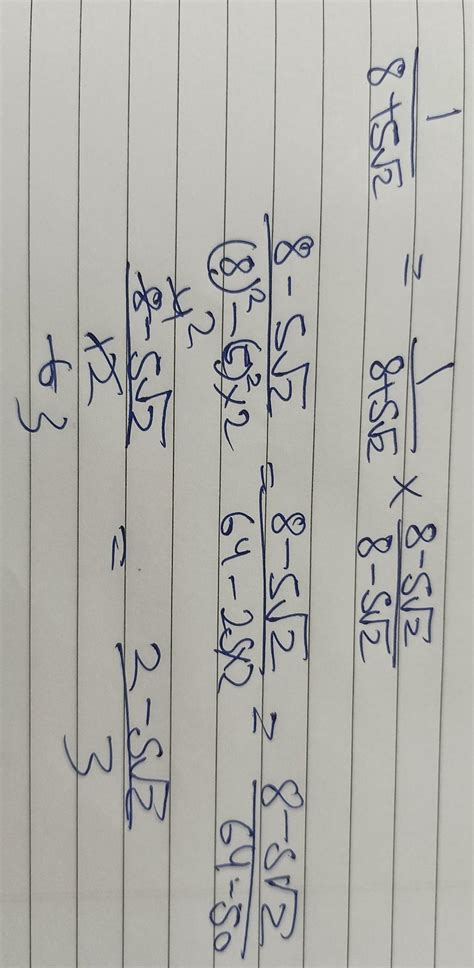 1/(8+5√2) = 1/(8+5√2) × (8-5√2)/(8-5√2)
(8-5√2)/((8)²-(5)²×2) = (8-5√2)/(64-25×2) = (8-5√2)/(64-50)
4 2
(8-5√2)/12 = (2-5√2)/3
6 3